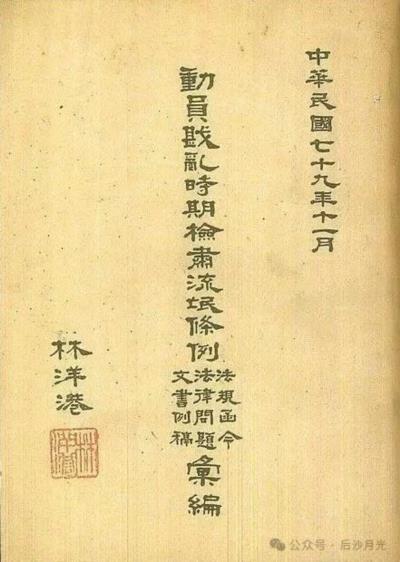 中華民國七十九年十一月
動員戡亂時期檢肅流氓條例
法規函令
法律問題
文書例稿
彙編
林洋港
公众号 · 后沙月光